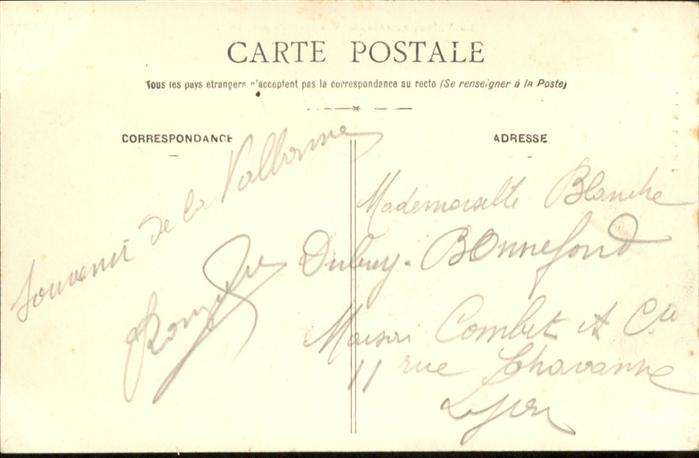 CARTE POSTALE
Tous les pays etrangers n'acceptent pas la correspondance au recto (Se renseigner à la Poste)
CORRESPONDANCE
ADRESSE
Souvenir de la Valbonne
Mademoiselle Blanche
Bonnefond
Maison Combet & Cie
11 rue Chavanne
Lyon